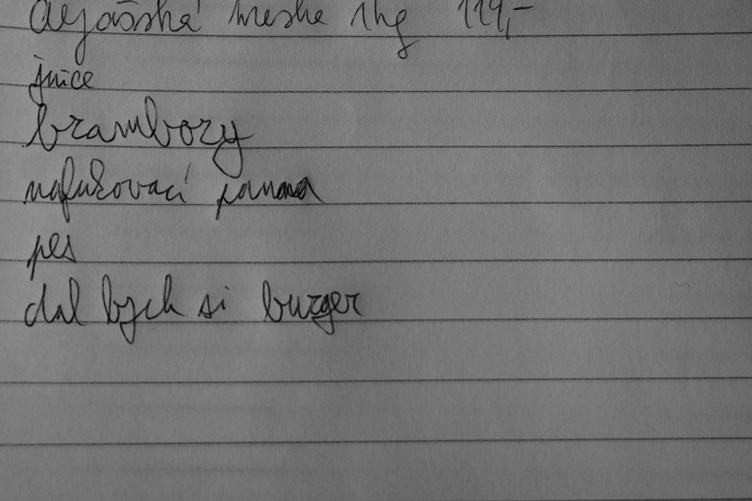 Aljašská treska 1kg 119,-
juice
brambory
nafukovací panna
pes
dal bych si burger